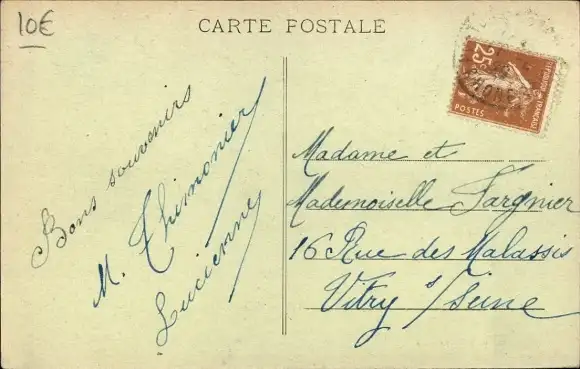 10€
CARTE POSTALE
25c
POSTES
RHONE
Bons souvenirs
M. Thimonier
Lucienne
Madame et
Mademoiselle Fargnier
16 Rue des Malassis
Vitry s/ Seine